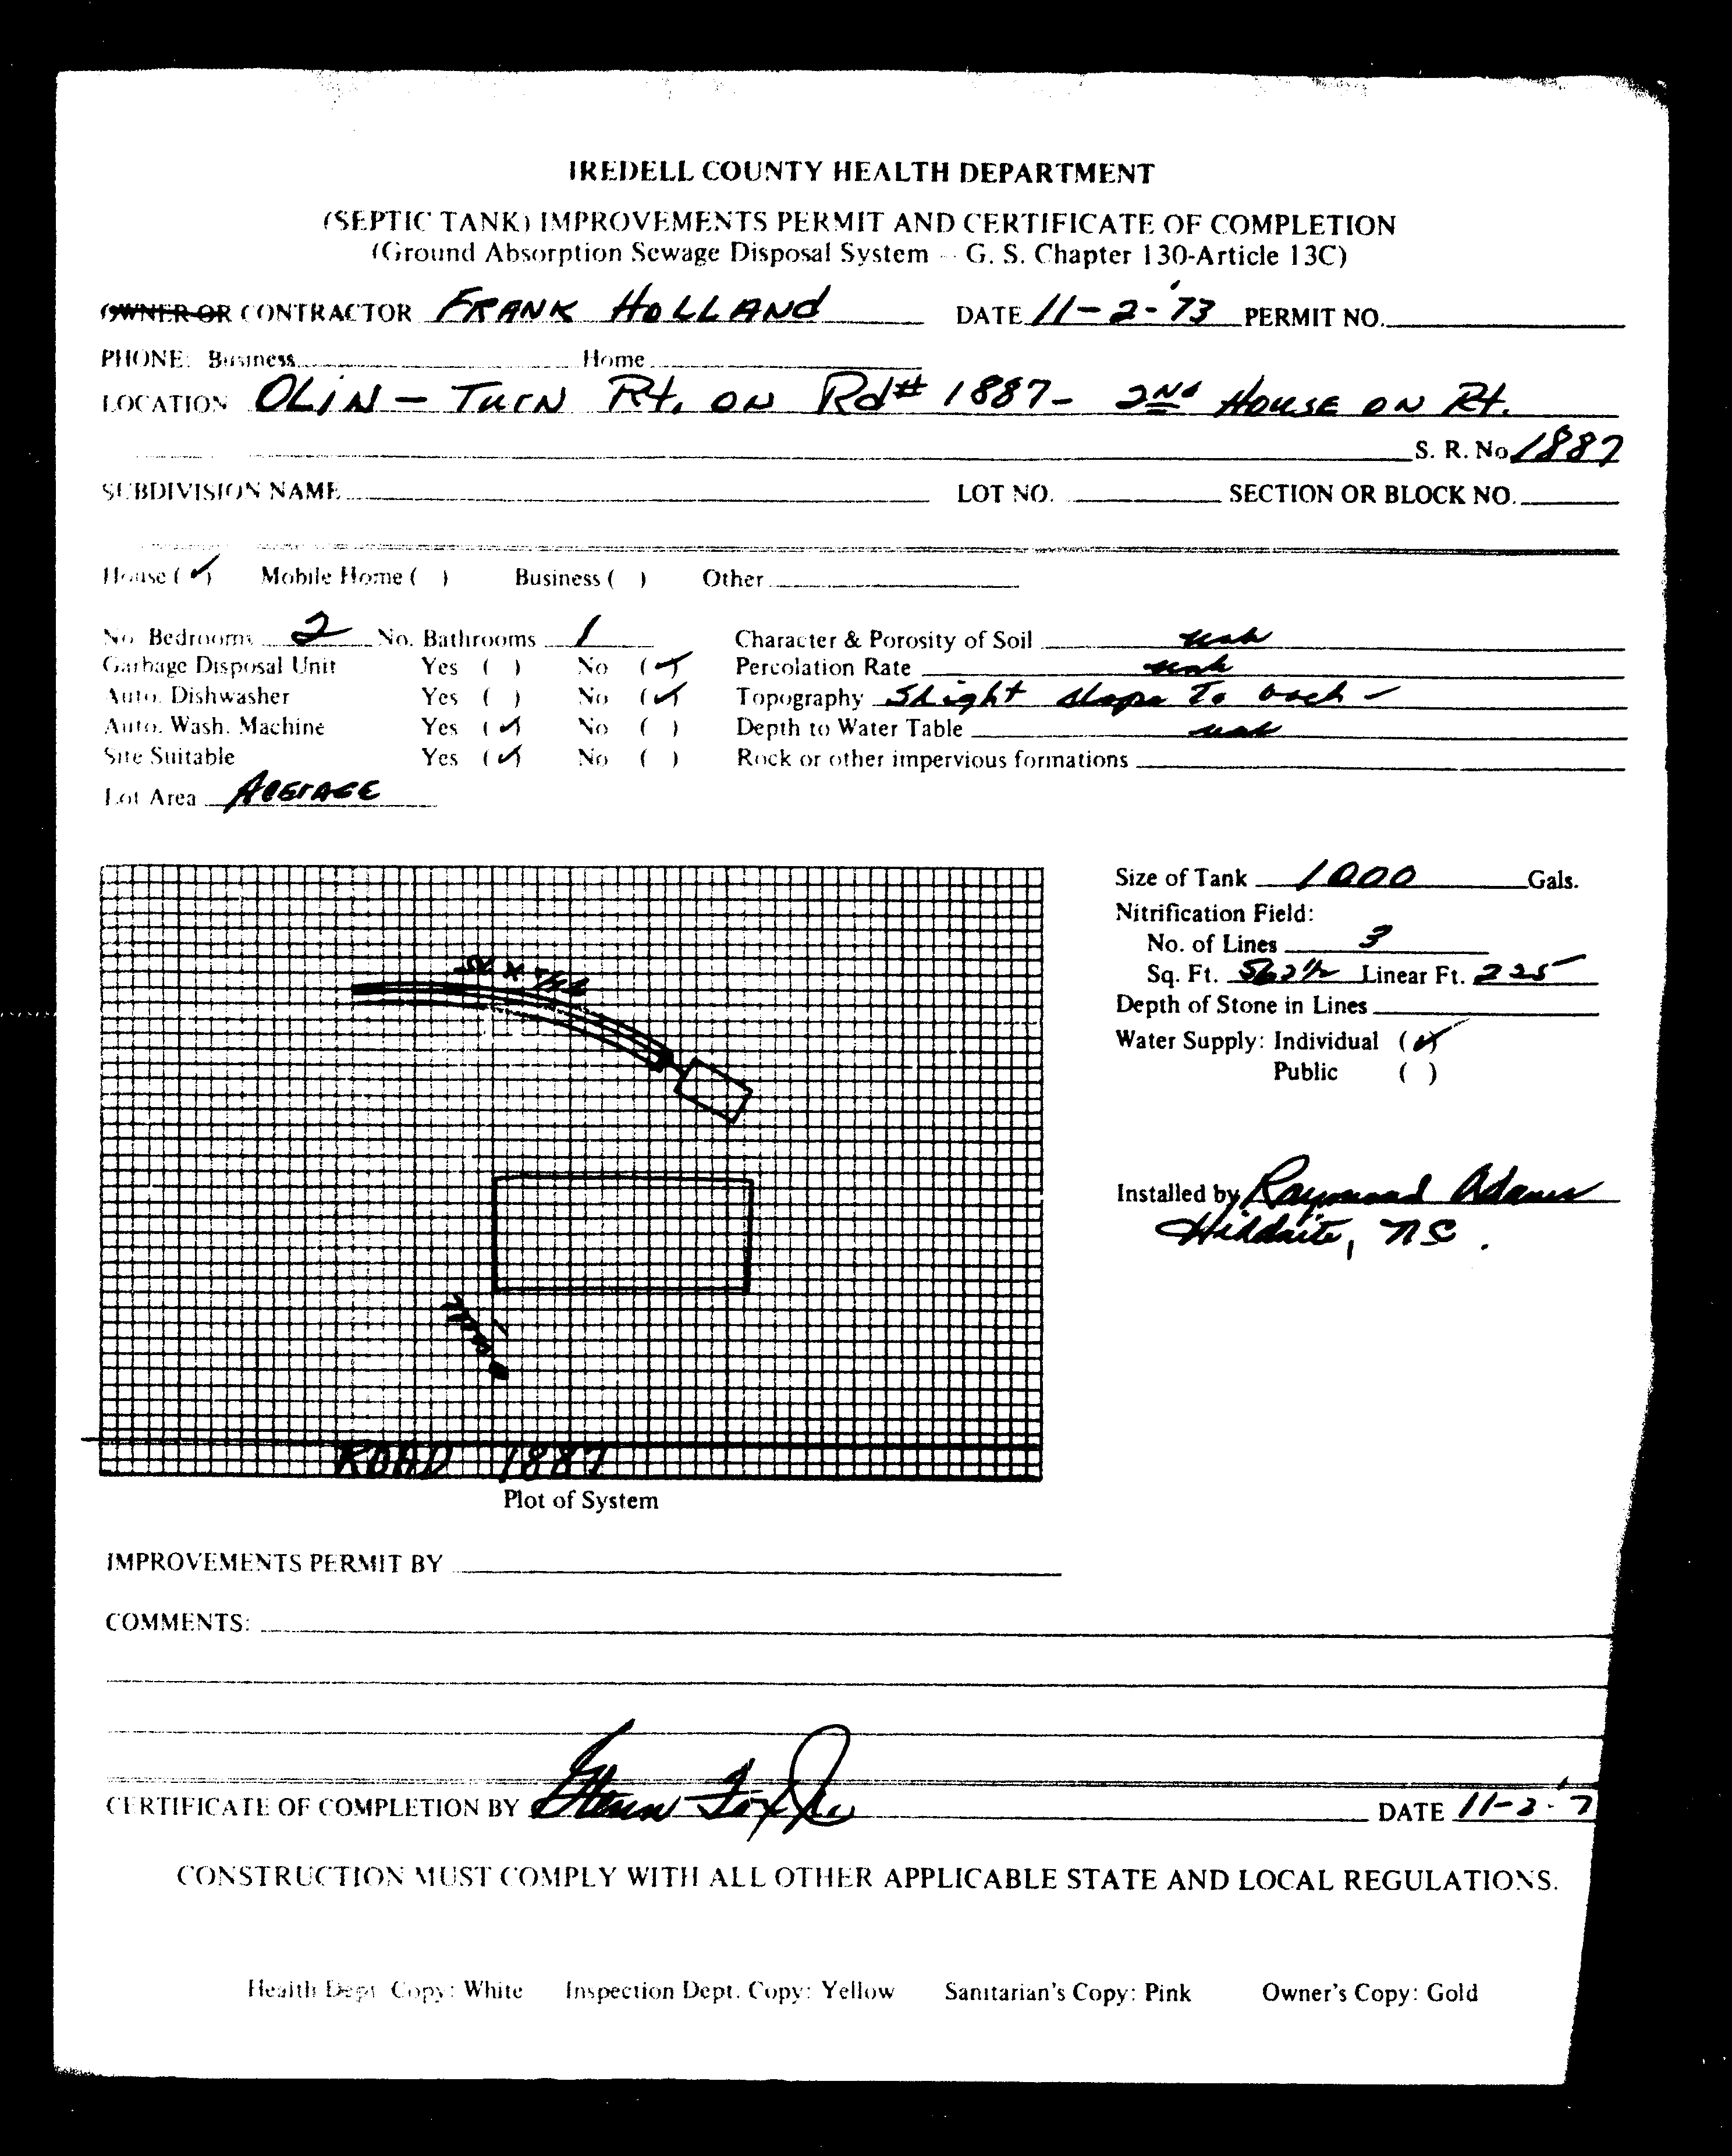 IREDELL COUNTY HEALTH DEPARTMENT
(SEPTIC TANK) IMPROVEMENTS PERMIT AND CERTIFICATE OF COMPLETION
(Ground Absorption Sewage Disposal System -- G. S. Chapter 130-Article 13C)
OWNER OR CONTRACTOR FRANK HOLLAND DATE 11-2-'73 PERMIT NO.
PHONE: Business Home
LOCATION OLIN - TURN Rt. ON Rd# 1887- 2ND HOUSE ON Rt.
S. R. No. 1887
SUBDIVISION NAME LOT NO. SECTION OR BLOCK NO.
House (✓) Mobile Home ( ) Business ( ) Other
No. Bedrooms 2 No. Bathrooms 1 Character & Porosity of Soil
Garbage Disposal Unit Yes ( ) No (✓) Percolation Rate
Auto. Dishwasher Yes ( ) No (✓) Topography Slight slope To back -
Auto. Wash. Machine Yes (✓) No ( ) Depth to Water Table
Site Suitable Yes (✓) No ( ) Rock or other impervious formations
Lot Area
Size of Tank 1000 Gals.
Nitrification Field:
No. of Lines 3
Sq. Ft. 562½ Linear Ft. 225
Depth of Stone in Lines
Water Supply: Individual (✓)
Public ( )
Installed by Raymond Adams
Hiddnite, NC.
ROAD 1887
Plot of System
IMPROVEMENTS PERMIT BY
COMMENTS:
CERTIFICATE OF COMPLETION BY DATE 11-2-'7
CONSTRUCTION MUST COMPLY WITH ALL OTHER APPLICABLE STATE AND LOCAL REGULATIONS.
Health Dept. Copy: White Inspection Dept. Copy: Yellow Sanitarian's Copy: Pink Owner's Copy: Gold